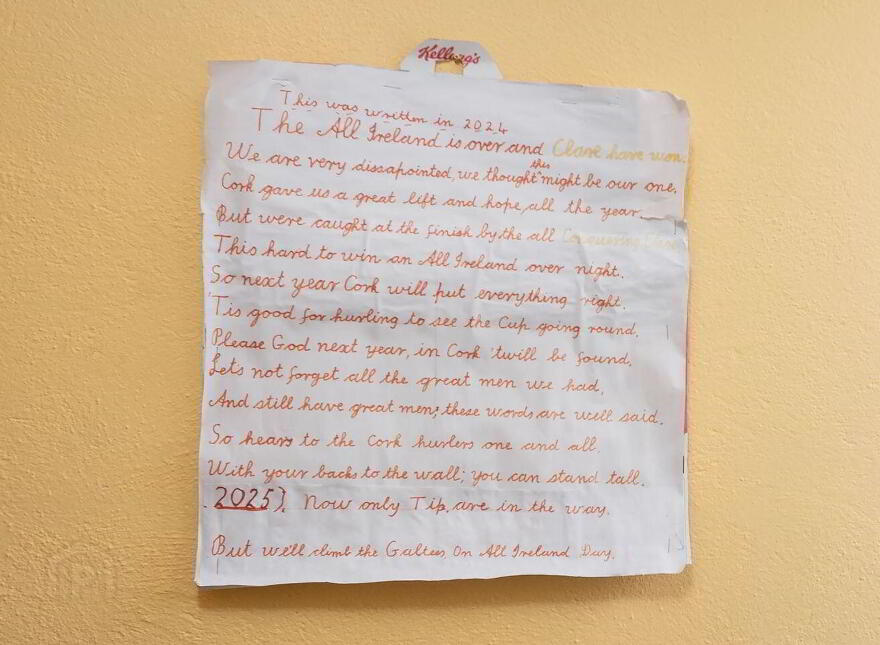 Kellogg's
This was written in 2024
The All Ireland is over and Clare have won.
We are very dissapointed, we thought this might be our one.
Cork gave us a great lift and hope, all the year.
But were caught at the finish by the all Conquering Clare
This hard to win an All Ireland over night.
So next year Cork will put everything right.
'Tis good for hurling to see the Cup going round.
Please God next year, in Cork 'twill be found.
Lets not forget all the great men we had.
And still have great men; these words are well said.
So hears to the Cork hurlers one and all.
With your backs to the wall; you can stand tall.
2025}. Now only Tip. are in the way.
But we'll climb the Galtees, On All Ireland Day.